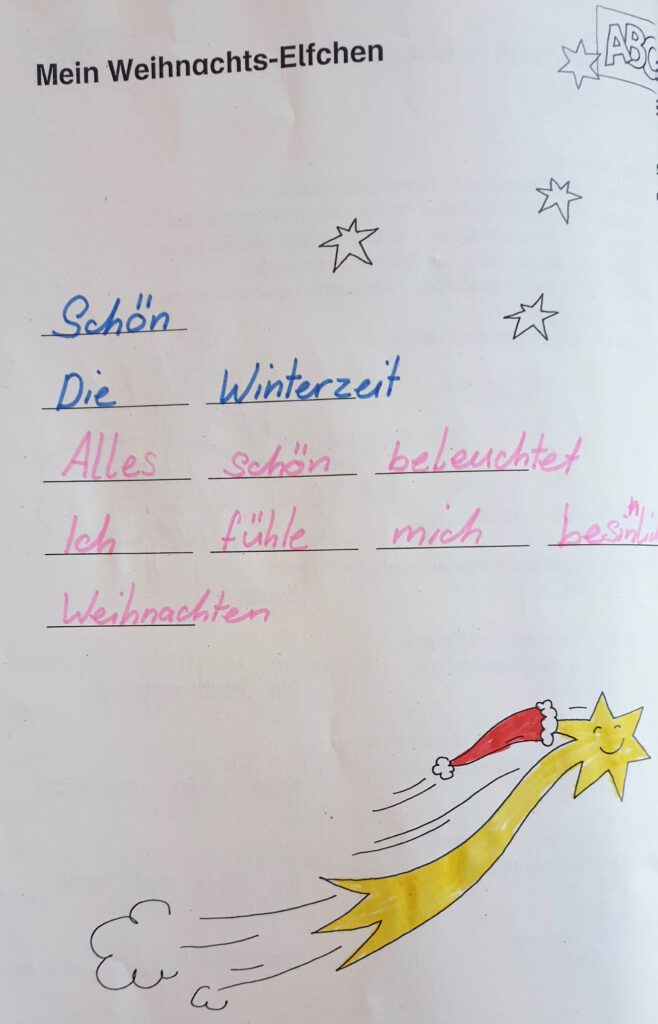 Mein Weihnachts-Elfchen
ABC
Schön
Die Winterzeit
Alles schön beleuchtet
Ich fühle mich
Weihnachten